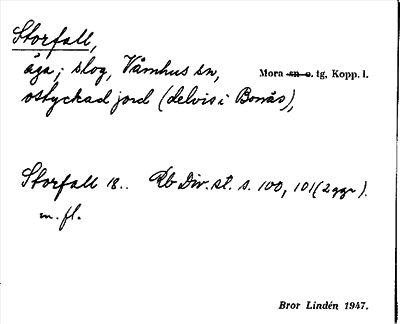 Storfall,
äga; skog, Våmhus sn, Mora sn o. tg, Kopp. l.
ostyckad jord (delvis i Bonäs),
Storfall 18.. Rb Div. st. s. 100, 101 (2 ggr).
m. fl.
Bror Lindén 1947.